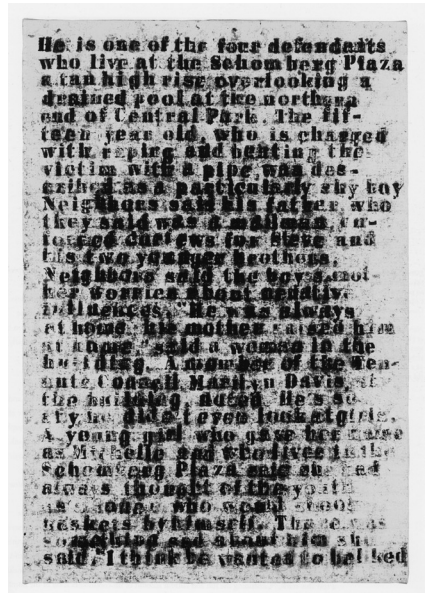 He is one of the four defendants
who live at the Schomberg Plaza
a tan high rise overlooking a
drained pool at the northern
end of Central Park. The fif-
teen year old, who is charged
with raping and beating the
victim with a pipe was des-
cribed as a particularly shy boy
Neighbors said his father who
they said was a mailman, en-
forced curfews for Steve and
his two younger brothers.
Neighbors said the boy's mot-
her worries about negative
influences. He was always
at home. his mother raised him
at home, said a woman in the
building. A member of the Ten-
ants Council Marilyn Davis, at
the building noted He's so
shy he didn't even look at girls.
A young girl who gave her name
as Michelle and who lives in the
Schomberg Plaza said she had
always thought of the youth
as a loner who would shoot
baskets by himself. There was
something sad about him she
said, "I think he wanted to be liked